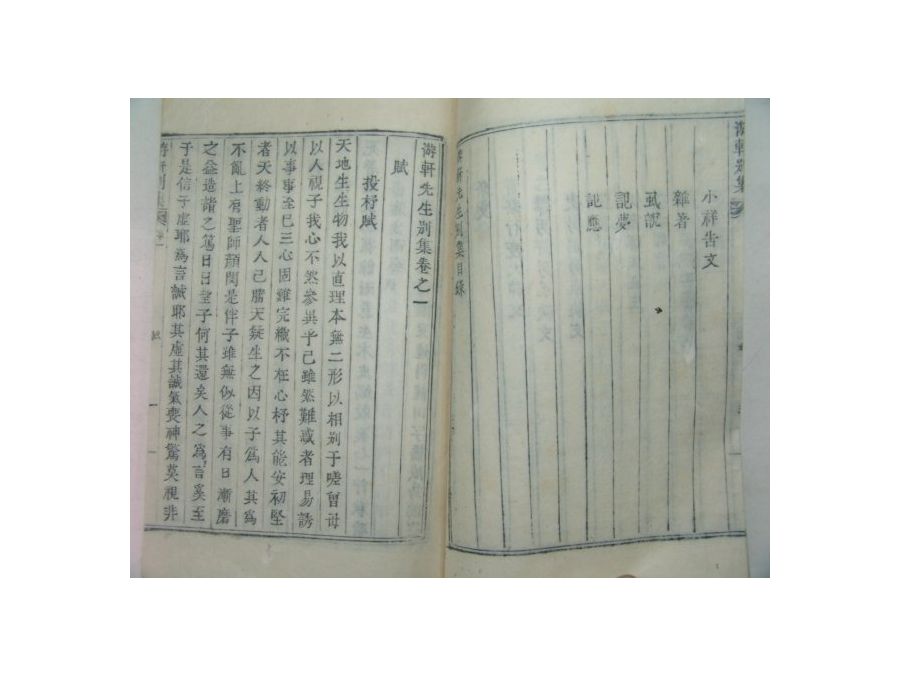 游軒别集
小祥告文
雜著
虱說
記夢
記應
游軒先生别集目錄
游軒先生别集卷之一
賦
投杼賦
天地生生物我以直理本無二形以相别于嗟曾母
以人視子我心不然參異乎己雖然難惑者理易誘
以事事至已三心固雖完織不在心杼其能安初堅
者天終動者人人已勝天疑生之因以子爲人其爲
不亂上有聖師顔閔是伴子雖無似從事有日漸磨
之益造諸之篤日日望子何其還矣人之爲言奚至
于是信子虛耶爲言誠耶其虛其誠氣喪神驚莫視非